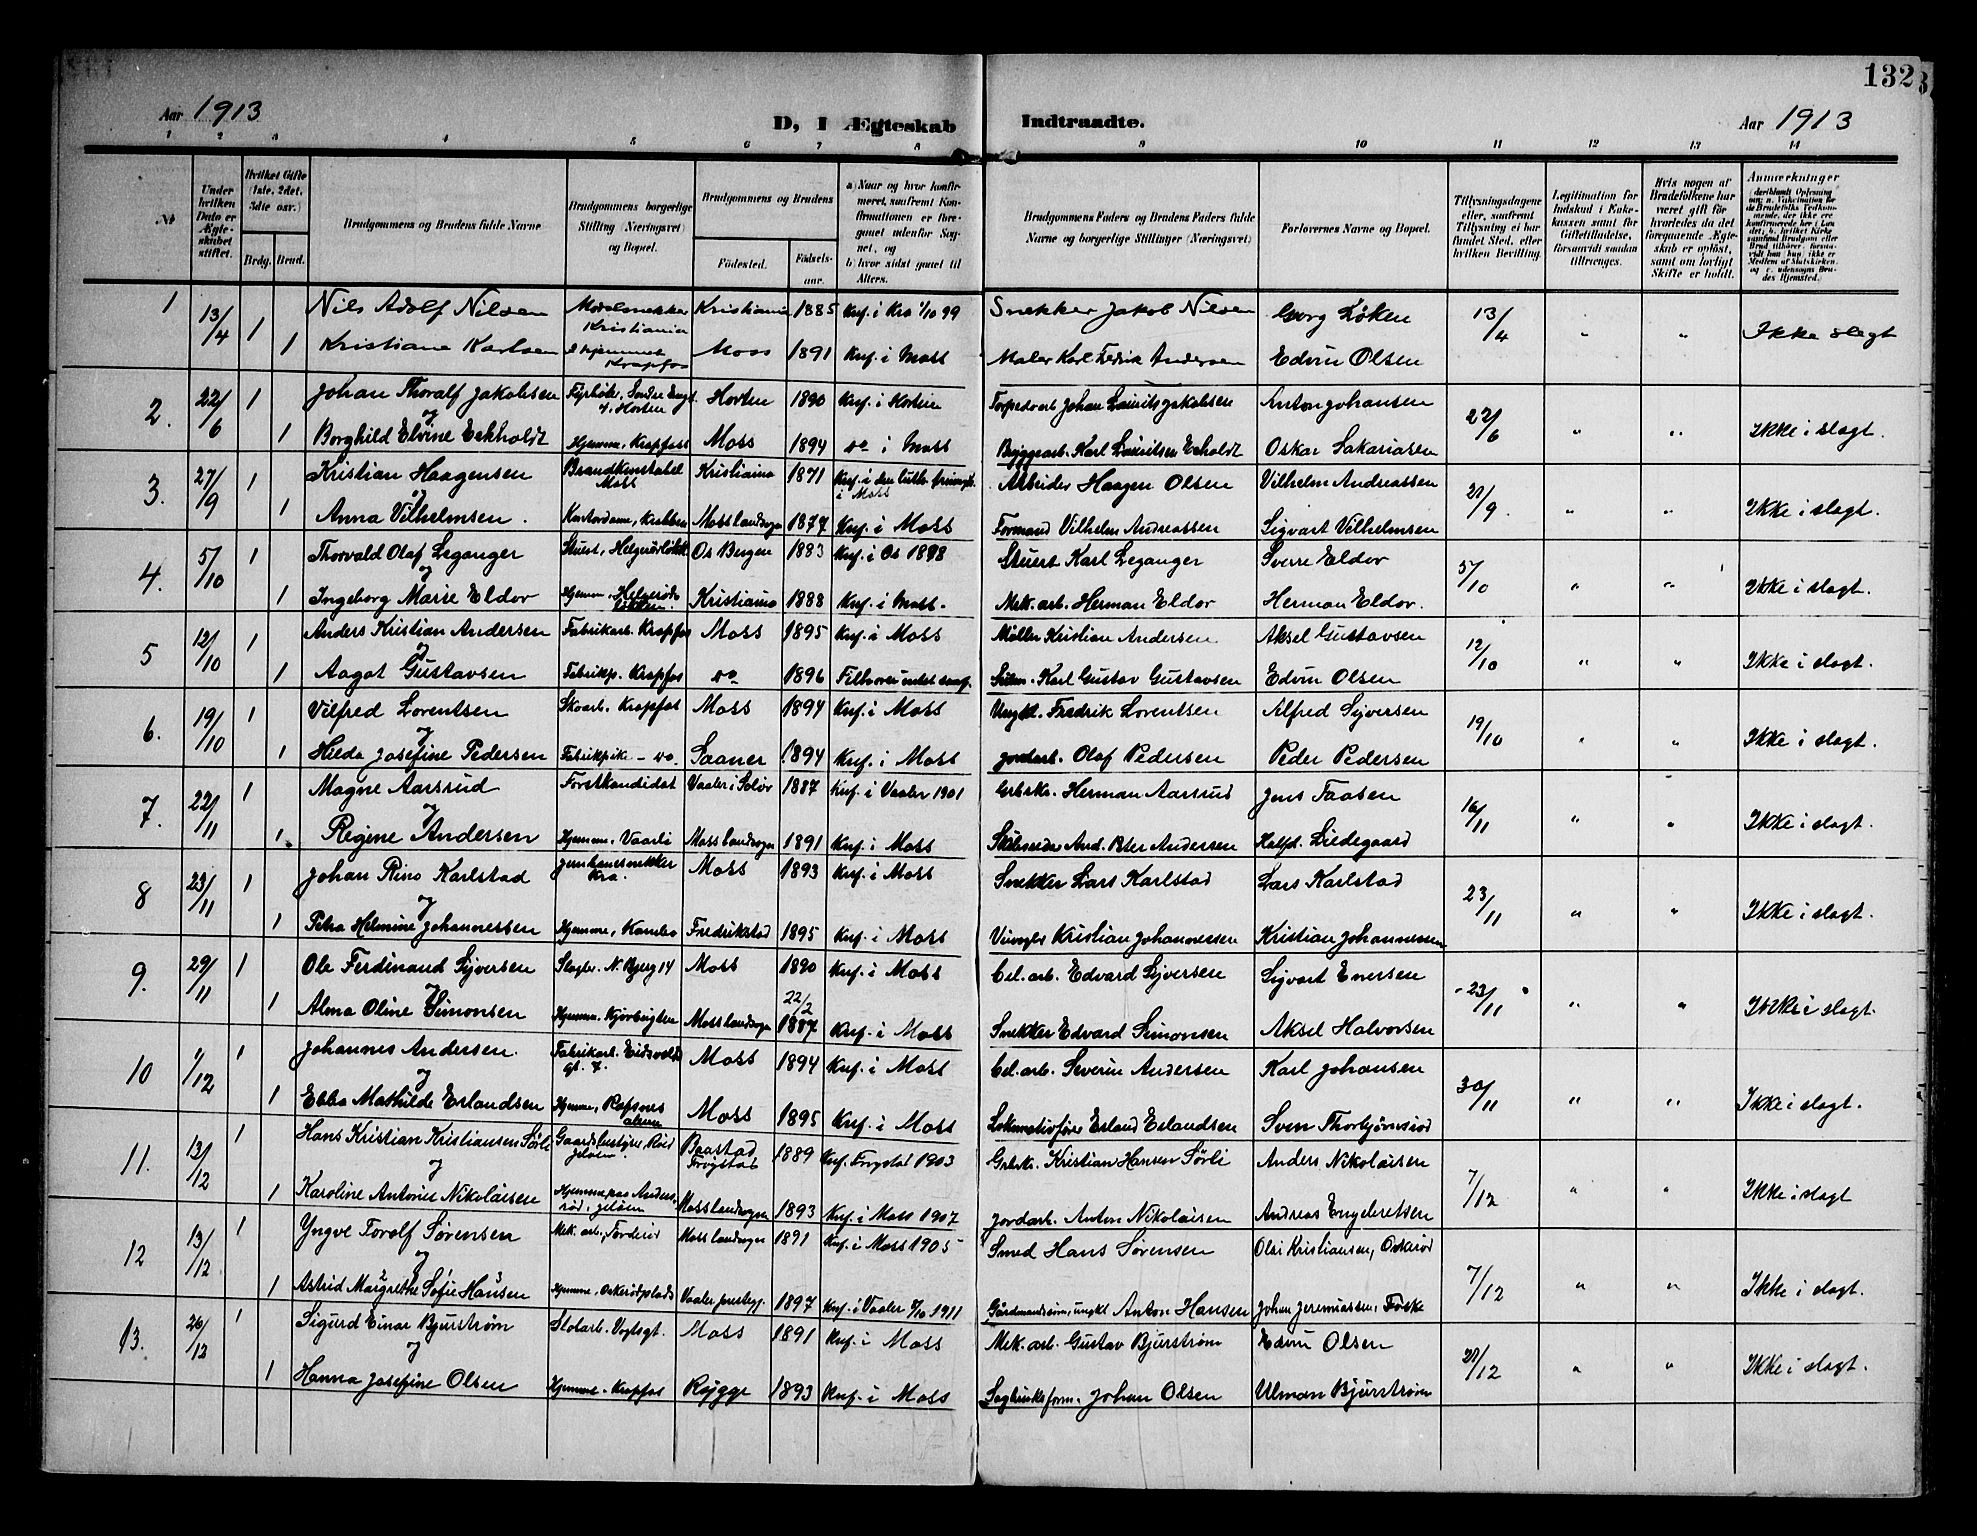 132
Aar 1913
D, I Ægteskab Indtraadte.
Aar 1913
1 2 3 4 5 6 7 8 9 10 11 12 13 14
Nr
Under hvilken Dato er Ægteskabet stiftet.
Hvilket Gifte (1ste, 2det, 3dte osv.)
Brdg. Brud.
Brudgommens og Brudens fulde Navne
Brudgommens borgerlige Stilling (Næringsvei) og Bopæl.
Brudgommens og Brudens
Födested. Födselsaar.
a) Naar og hvor konfirmeret, saafremt Konfirmationen er foregaaet udenfor Sognet, og
b) hvor sidst gaaet til Alters.
Brudgommens Faders og Brudens Faders fulde Navne og borgerlige Stillinger (Næringsvei)
Forlovernes Navne og Bopæl.
Tillysningsdagene eller, saafremt Tillysning ei har fundet Sted, efter hvilken Bevilling.
Legitimation for Indskud i Enkekassen samt for Giftetilladelse, forsaavidt saadan tiltrænges.
Hvis nogen af Brudefolkene har været gift för hvorledes da det foregaaende Ægteskab er oplöst, samt om lovligt Skifte er holdt.
Anmærkninger
1 13/4 1 Nils Adolf Nilsen Modelsnekker Kristiania Kristiania 1885 Knf. i Kra 1/10 99 Snekker Jakob Nilsen Georg Løken 13/4 " " Ikke slegt
1 Kristiane Karlsen Hjemmet Krapfos Moss 1891 Knf. i Moss Maler Karl Fedrik Andersen Edvin Olsen
2. 22/6 1 Johan Thoralf Jakobsen Fyrbøter, Horten Horten 1890 Knf. i Horten Torpedoarb. Johan Lauritz Jakobsen Anton Johansen 22/6 " " Ikke i slegt.
og
1 Borghild Elvine Eekholdt Hjemme. Krapfoss Moss 1894 do i Moss Bryggearb. Karl Lauritsen Eekholdt Oskar Sakariasen
3. 27/9 1 Kristian Haagensen Brandkonstabel Moss Kristiania 1871 Knf. i den luth. frimenigh. i Moss Arbeider Haagen Olsen Vilhelm Andreassen 21/9 " " Ikke i slegt.
og
1 Anna Vilhelmsen. Moss landsogn 1874 Knf. i Moss Formand Vilhelm Andreassen Sigvart Vilhelmsen
4. 5/10 1 Thorvald Olaf Leganger Stuert, Helgerødløkk Os Bergen 1883 Knf. i Os 1898 Stuert Karl Leganger Sverre Eldor 5/10 " " Ikke i slegt.
og
1 Ingeborg Marie Eldor Hjemm, Helgerødløkken. Kristiania 1888 Knf. i Moss. Mek. arb. Herman Eldor Herman Eldor.
5 12/10 1 Anders Kristian Andersen Fabrikarb. Krapfos Moss 1895 Knf. i Moss Møller Kristian Andersen Aksel Gustavsen 12/10 " " Ikke i slegt.
og
1 Aagot Gustavsen Fabrikp. Krapfos do 1896 Karl Gustav Gustavsen Edvin Olsen
6. 19/10 1 Vilfred Lorentsen Skoarb. Krapfos Moss 1894 Knf. i Moss Ungkl. Fredrik Lorentsen Alfred Syversen 19/10 " " Ikke i slegt.
og
1 Hilda Josefine Pedersen Fabrikpike – do. Saaner 1894 Knf. i Moss Jordarb. Olaf Pedersen Peder Pedersen
7. 22/11 1 Magne Aarsrud Forstkandidat Vaaler i Solør 1887 Knf. i Vaaler 1901 Grbrk. Herman Aarsrud Jens Faasen 16/11 " " Ikke i slegt.
og
1. Regine Andersen Hjemme. Vaarli Moss landsogn 1891 Knf. i Moss And. Peter Andersen Halfd. Lidegaard
8 23/11 1 Johan Rino Karlstad Kra. Moss 1893 Knf. i Moss Snekker Lars Karlstad Lars Karlstad 23/11 " " Ikke i slegt.
og
1 Petra Helmine Johannessen Hjemme, Kambo Fredrikstad 1895 Knf. i Moss Kristian Johannessen Kristian Johannessen
9. 29/11 1 Ole Ferdinand Syversen Slagter. N. Bjerg 14 Moss 1890 Knf. i Moss Cel. arb. Edvard Syversen Sigvart Enersen 23/11 " " Ikke i slegt.
og
1 Alma Oline Simonsen Hjemme. Moss landsogn 22/2 1887 Knf. i Moss Snekker Edvard Simonsen Aksel Halvorsen
10 1/12 1 Johannes Andersen. Fabrikarb. Eidsvoldsgt. 7. Moss 1894 Knf. i Moss Cel. arb. Severin Andersen Karl Johansen 30/11 " " Ikke i slegt.
og
1 Ebba Mathilde Erlandsen Hjemme, Moss 1895 Knf. i Moss Lokomotivfører Erland Erlandsen Sven Thorbjørnsrød
11. 13/12 1 Hans Kristian Kristiansen Sørli Gaardsbestyrer, Jeløen. Baastad Trøgstad 1889 Knf. Trøgstad 1903 Grbrk. Kristian Hansen Sørli Anders Nikolaisen 7/12 " " Ikke i slegt
og
1 Karoline Antonie Nikolaisen Hjemme paa Andersrød, Jeløen Moss landsogn 1893 Knf. i Moss 1907 Jordarb. Anton Nikolaisen Andreas Engebretsen
12 13/12 1 Yngve Toralf Sørensen Mek. arb. Torderød Moss landsogn 1891 Knf. i Moss 1905 Smed Hans Sørensen Ole Kristiansen, Oskerød 7/12 " " Ikke i slegt.
og
1 Astrid Margrethe Sofie Hansen Hjemme, Oskerødplads Vaaler prestegj. 1897 Knf. i Vaaler 1911 Anton Hansen Johan Jeremiassen, Foske
13. 26/12 1 Sigurd Einar Bjurstrøm Stolarb. Vogtsgt. Moss 1891 Knf. i Moss Mek. arb. Gustav Bjurstrøm Edvin Olsen 21/12 " " Ikke i slegt.
og
1 Hanna Josefine Olsen Hjemme – Krapfos Rygge 1893 Knf. i Moss Sagbruksform. Johan Olsen Ulman Bjurstrøm